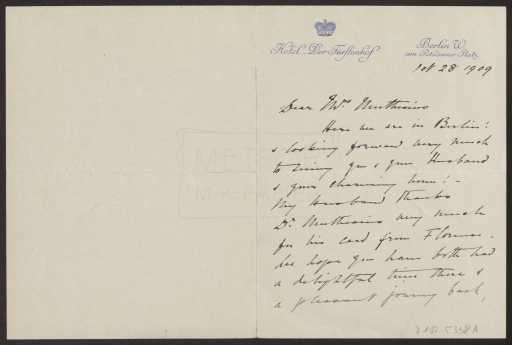 Hotel "Der Fürstenhof"
Berlin W.
am Potsdamer Platz.
Oct 28 1909
Dear Mrs Muthesius
Here we are in Berlin!
& looking forward very much
to seeing you & your Husband
& your charming home! -
My Husband thanks
Dr. Muthesius very much
for his card from Florence.
We hope you have both had
a delightful time there &
a pleasant journey back,